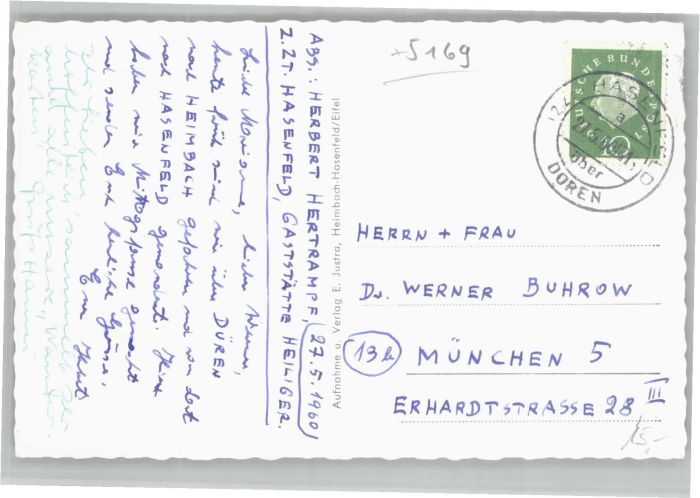 +5169
Abs.: HERBERT HERTRAMPF, 27.5.1960
z.Zt. HASENFELD, GASTSTÄTTE HEILIGER.
Liebe Marianne, lieber Werner,
heute früh sind wir über DÜREN
nach HEIMBACH gefahren und von dort
nach HASENFELD gewandert. Hier
haben wir Mittagspause gemacht
und senden Euch herzliche Grüsse.
Euer
Ihr Lieben,
Aufnahme u. Verlag E. Justra, Heimbach-Hasenfeld/Eifel
DEUTSCHE BUNDESPOST
HASENFELD
a
über
DÜREN
HERRN + FRAU
Dr. WERNER BUHROW
13b MÜNCHEN 5
ERHARDTSTRASSE 28, III
15,-